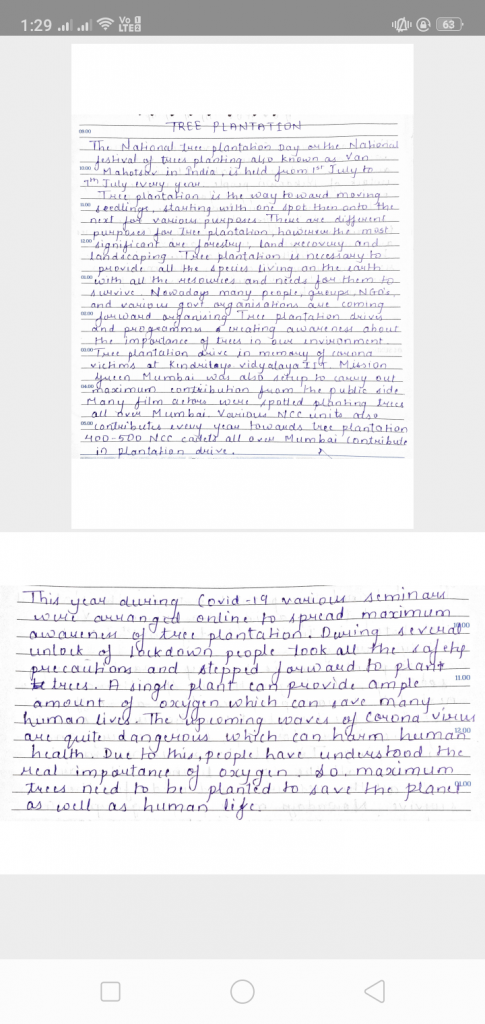 1:29
Vo
LTE
63
TREE PLANTATION
The National tree plantation Day or the National
festival of trees planting also known as Van
Mahotsav in India, is held from 1st July to
7th July every year
Tree plantation is the way toward moving
seedlings, starting with one spot then onto the
next for various purposes. There are different
purposes for Tree plantation, however the most
significant are forestry, land recovery and
landscaping. Tree plantation is necessary to
provide all the species living on the earth
with all the resources and needs for them to
survive. Nowadays many people, groups, NGO's,
and various govt organisations are coming
forward organising Tree plantation drives
and programmes creating awareness about
the importance of trees in our environment.
Tree plantation drive in memory of corona
victims at Kendrilaya vidyalaya IIT. Mission
Green Mumbai was also setup to carry out
maximum contribution from the public side
Many film actors were spotted planting trees
all over Mumbai. Various NCC units also
contributes every year towards tree plantation
400-500 NCC cadets all over Mumbai contribute
in plantation drive.
This year during Covid-19 various seminars
were arranged online to spread maximum
awareness of tree plantation. During several
unlock of lockdown people took all the safety
precautions and stepped forward to plant
trees. A single plant can provide ample
11.00
amount of oxygen which can save many
human lives. The upcoming waves of Corona virus
are quite dangerous which can harm human
health. Due to this, people have understood the
real importance of oxygen. So, maximum
trees need to be planted to save the planet
as well as human life.